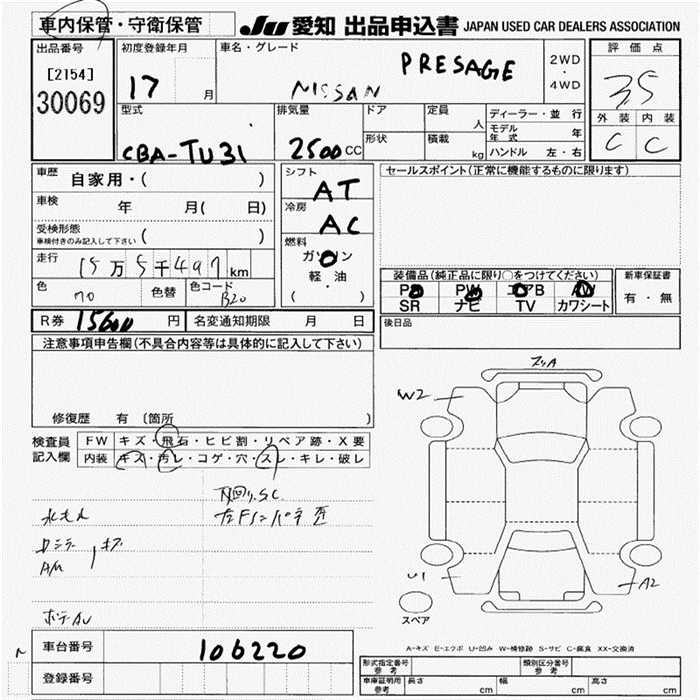 車内保管・守衛保管
JU 愛知 出品申込書 JAPAN USED CAR DEALERS ASSOCIATION
出品番号
[2154]
30069
初度登録年月
17 月
車名・グレード
NISSAN PRESAGE
2WD
・
4WD
評価点
3.5
外装 内装
C C
型式
CBA-TU31
排気量
2500 CC
ドア
形状
定員
人
積載
kg
ディーラー・並行
モデル年式 年
ハンドル 左・右
車歴
自家用・( )
車検
年 月( 日)
受検形態
車検付きのみ記入して下さい ( )
走行
15万5千497km
色
色替
色コード
R券 15600 円
名変通知期限 月 日
シフト
AT
冷房
AC
燃料
ガソリン
軽・油
( )
セールスポイント(正常に機能するものに限ります)
装備品(純正品に限り○をつけてください)
PS PW エアB AW
SR ナビ TV カワシート
新車保証書
有・無
後日品
注意事項申告欄(不具合内容等は具体的に記入して下さい)
修復歴 有 〔箇所 〕
検査員
記入欄
FW キズ・飛石・ヒビ割・リペア跡・X要
内装 キズ・汚レ・コゲ・穴・スレ・キレ・破レ
下回り.S.C.
W2
U1
A2
スペア
A-キズ E-エクボ U-凹み W-補修跡 S-サビ C-腐食 XX-交換済
車台番号
106220
登録番号
型式指定番号 参考
類別区分番号 参考
車庫証明用 参考
長さ cm
幅 cm
高さ cm